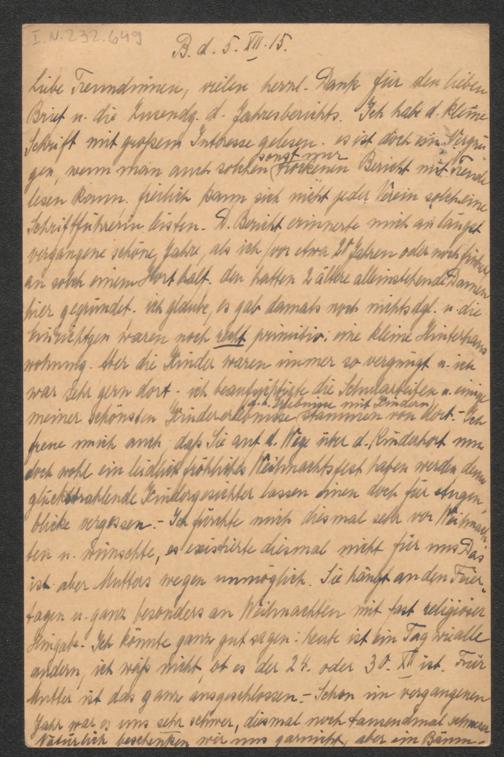 I.N. 232.649
B. d. 5. XII. 15.
Liebe Freundinnen, vielen herzl. Dank für den lieben
Brief u. die Zusendg. d. Jahresberichts. Ich habe d. kleine
Schrift mit großem Interesse gelesen. es ist doch ein Vergnü-
gen, wenn man auch solchen sonst nur trockenen Bericht mit Freude
lesen kann. freilich kann sich nicht jeder Verein solch eine
Schriftführerin leisten. D. Bericht erinnerte mich an längst
vergangene schöne Jahre, als ich vor etwa 20 Jahren oder noch früher
an solch einem Hort half. den hatten 2 ältere alleinstehende Damen
hier gegründet. ich glaube, es gab damals noch nichts dgl. u. die
Einrichtgen waren noch recht primitiv. eine kleine Hinterhaus
wohnung. Aber die Kinder waren immer so vergnügt u. ich
war sehr gern dort. ich beaufsichtigte die Schularbeiten u. einige
meiner schönsten Kindererlebnisse d. h. Erlebnisse mit Kindern stammen von dort. - Ich
freue mich auch, daß Sie auf d. Wege über d. Kinderhort nun
doch wohl ein leidlich fröhliches Weihnachtsfest haben werden denn
glückstrahlende Kindergesichter lassen einen doch für Augen-
blicke vergessen. - Ich fürchte mich diesmal sehr vor Weihnach
ten u. wünschte, es existierte diesmal nicht für uns Das
ist aber Mutters wegen unmöglich. Sie hängt an den Feier-
tagen u. ganz besonders an Weihnachten mit fast religiöser
Hingabe. Ich könnte ganz gut sagen: heute ist ein Tag wie alle
andern, ich weiß nicht, ob es der 24. oder 30. XII ist. Für
Mutter ist das ganz ausgeschlossen. - Schon im vergangenen
Jahr war es uns sehr schwer, diesmal noch tausendmal schwerer
Natürlich beschenken wir uns garnicht, aber ein Bäum-